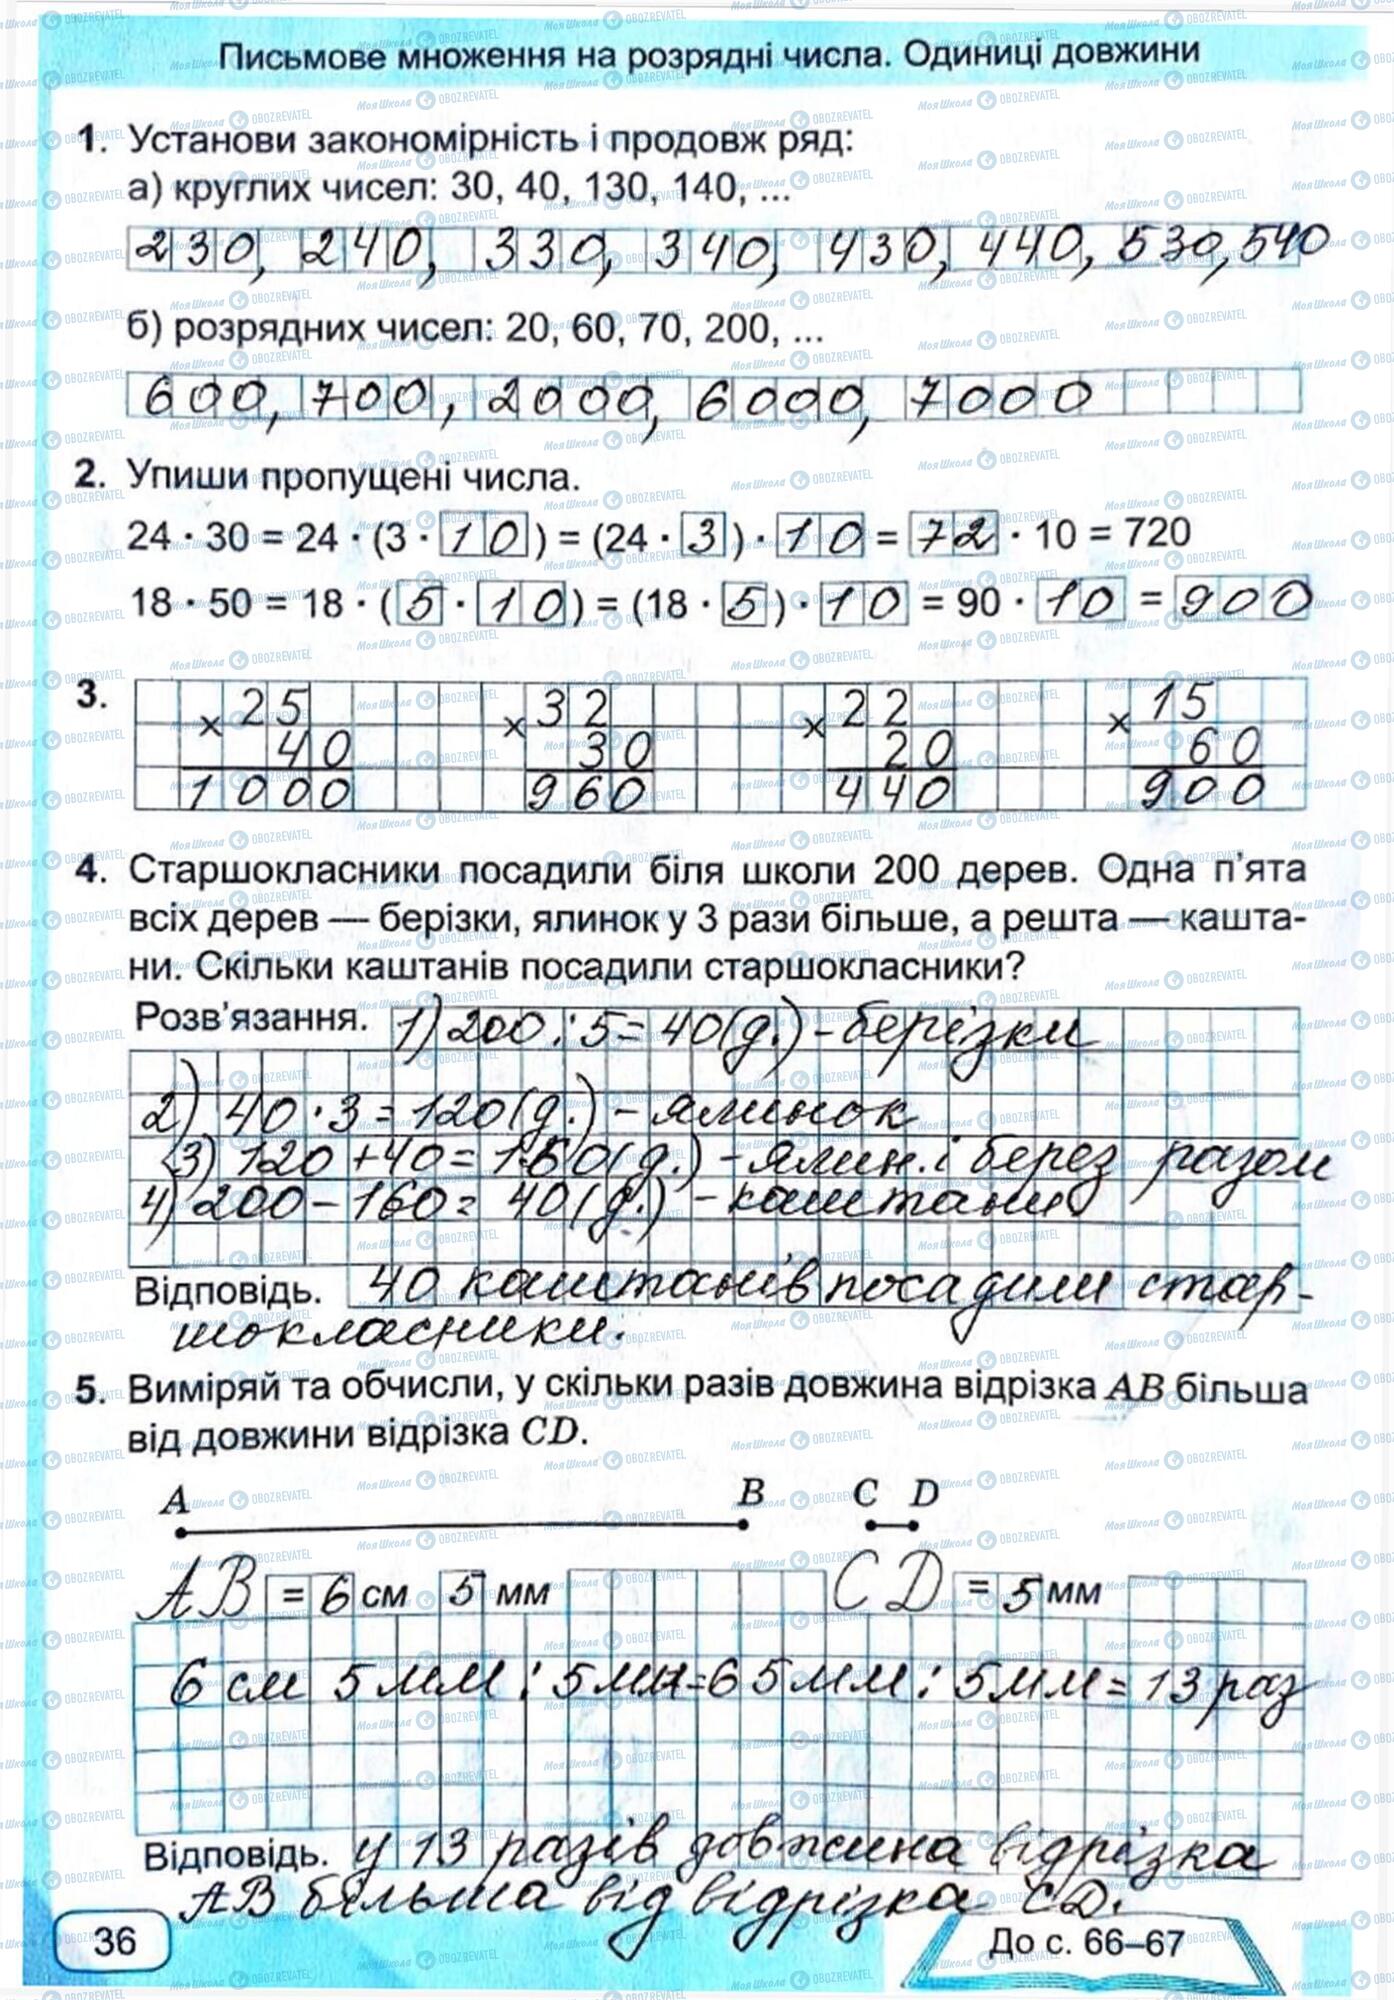 Письмове множення на розрядні числа. Одиниці довжини
1. Установи закономірність і продовж ряд:
а) круглих чисел: 30, 40, 130, 140, ...
230, 240, 330, 340, 430, 440, 530, 540
б) розрядних чисел: 20, 60, 70, 200, ...
600, 700, 2000, 6000, 7000
2. Упиши пропущені числа.
24 · 30 = 24 · (3 · 10) = (24 · 3) · 10 = 72 · 10 = 720
18 · 50 = 18 · (5 · 10) = (18 · 5) · 10 = 90 · 10 = 900
3. × 25 × 32 × 22 × 15
40 30 20 60
1000 960 440 900
4. Старшокласники посадили біля школи 200 дерев. Одна п'ята
всіх дерев — берізки, ялинок у 3 рази більше, а решта — кашта-
ни. Скільки каштанів посадили старшокласники?
Розв'язання. 1) 200 : 5 = 40 (д.) - берізки
2) 40 · 3 = 120 (д.) - ялинок
3) 120 + 40 = 160 (д.) - ялин. і берез разом
4) 200 - 160 = 40 (д.) - каштани
Відповідь. 40 каштанів посадили стар-
шокласники.
5. Виміряй та обчисли, у скільки разів довжина відрізка AB більша
від довжини відрізка CD.
A B C D
AB = 6 см 5 мм CD = 5 мм
6 см 5 мм : 5 мм = 65 мм : 5 мм = 13 раз
Відповідь. у 13 разів довжина відрізка
AB більша від відрізка CD.
36
До с. 66–67
МояШкола OBOZREVATEL